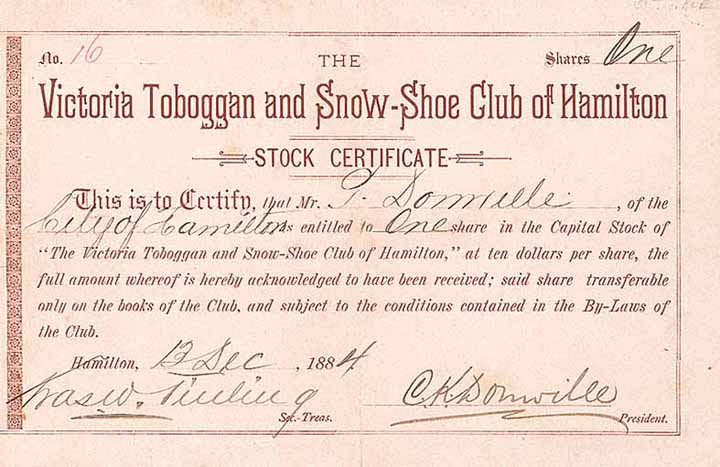 No. 16
Shares One
THE
Victoria Toboggan and Snow-Shoe Club of Hamilton
STOCK CERTIFICATE
This is to Certify, that Mr. T. Domville, of the
City of Hamilton is entitled to One share in the Capital Stock of
"The Victoria Toboggan and Snow-Shoe Club of Hamilton," at ten dollars per share, the
full amount whereof is hereby acknowledged to have been received; said share transferable
only on the books of the Club, and subject to the conditions contained in the By-Laws of
the Club.
Hamilton, 12 Dec, 1884
C.K. Domville
Sec.-Treas. President.